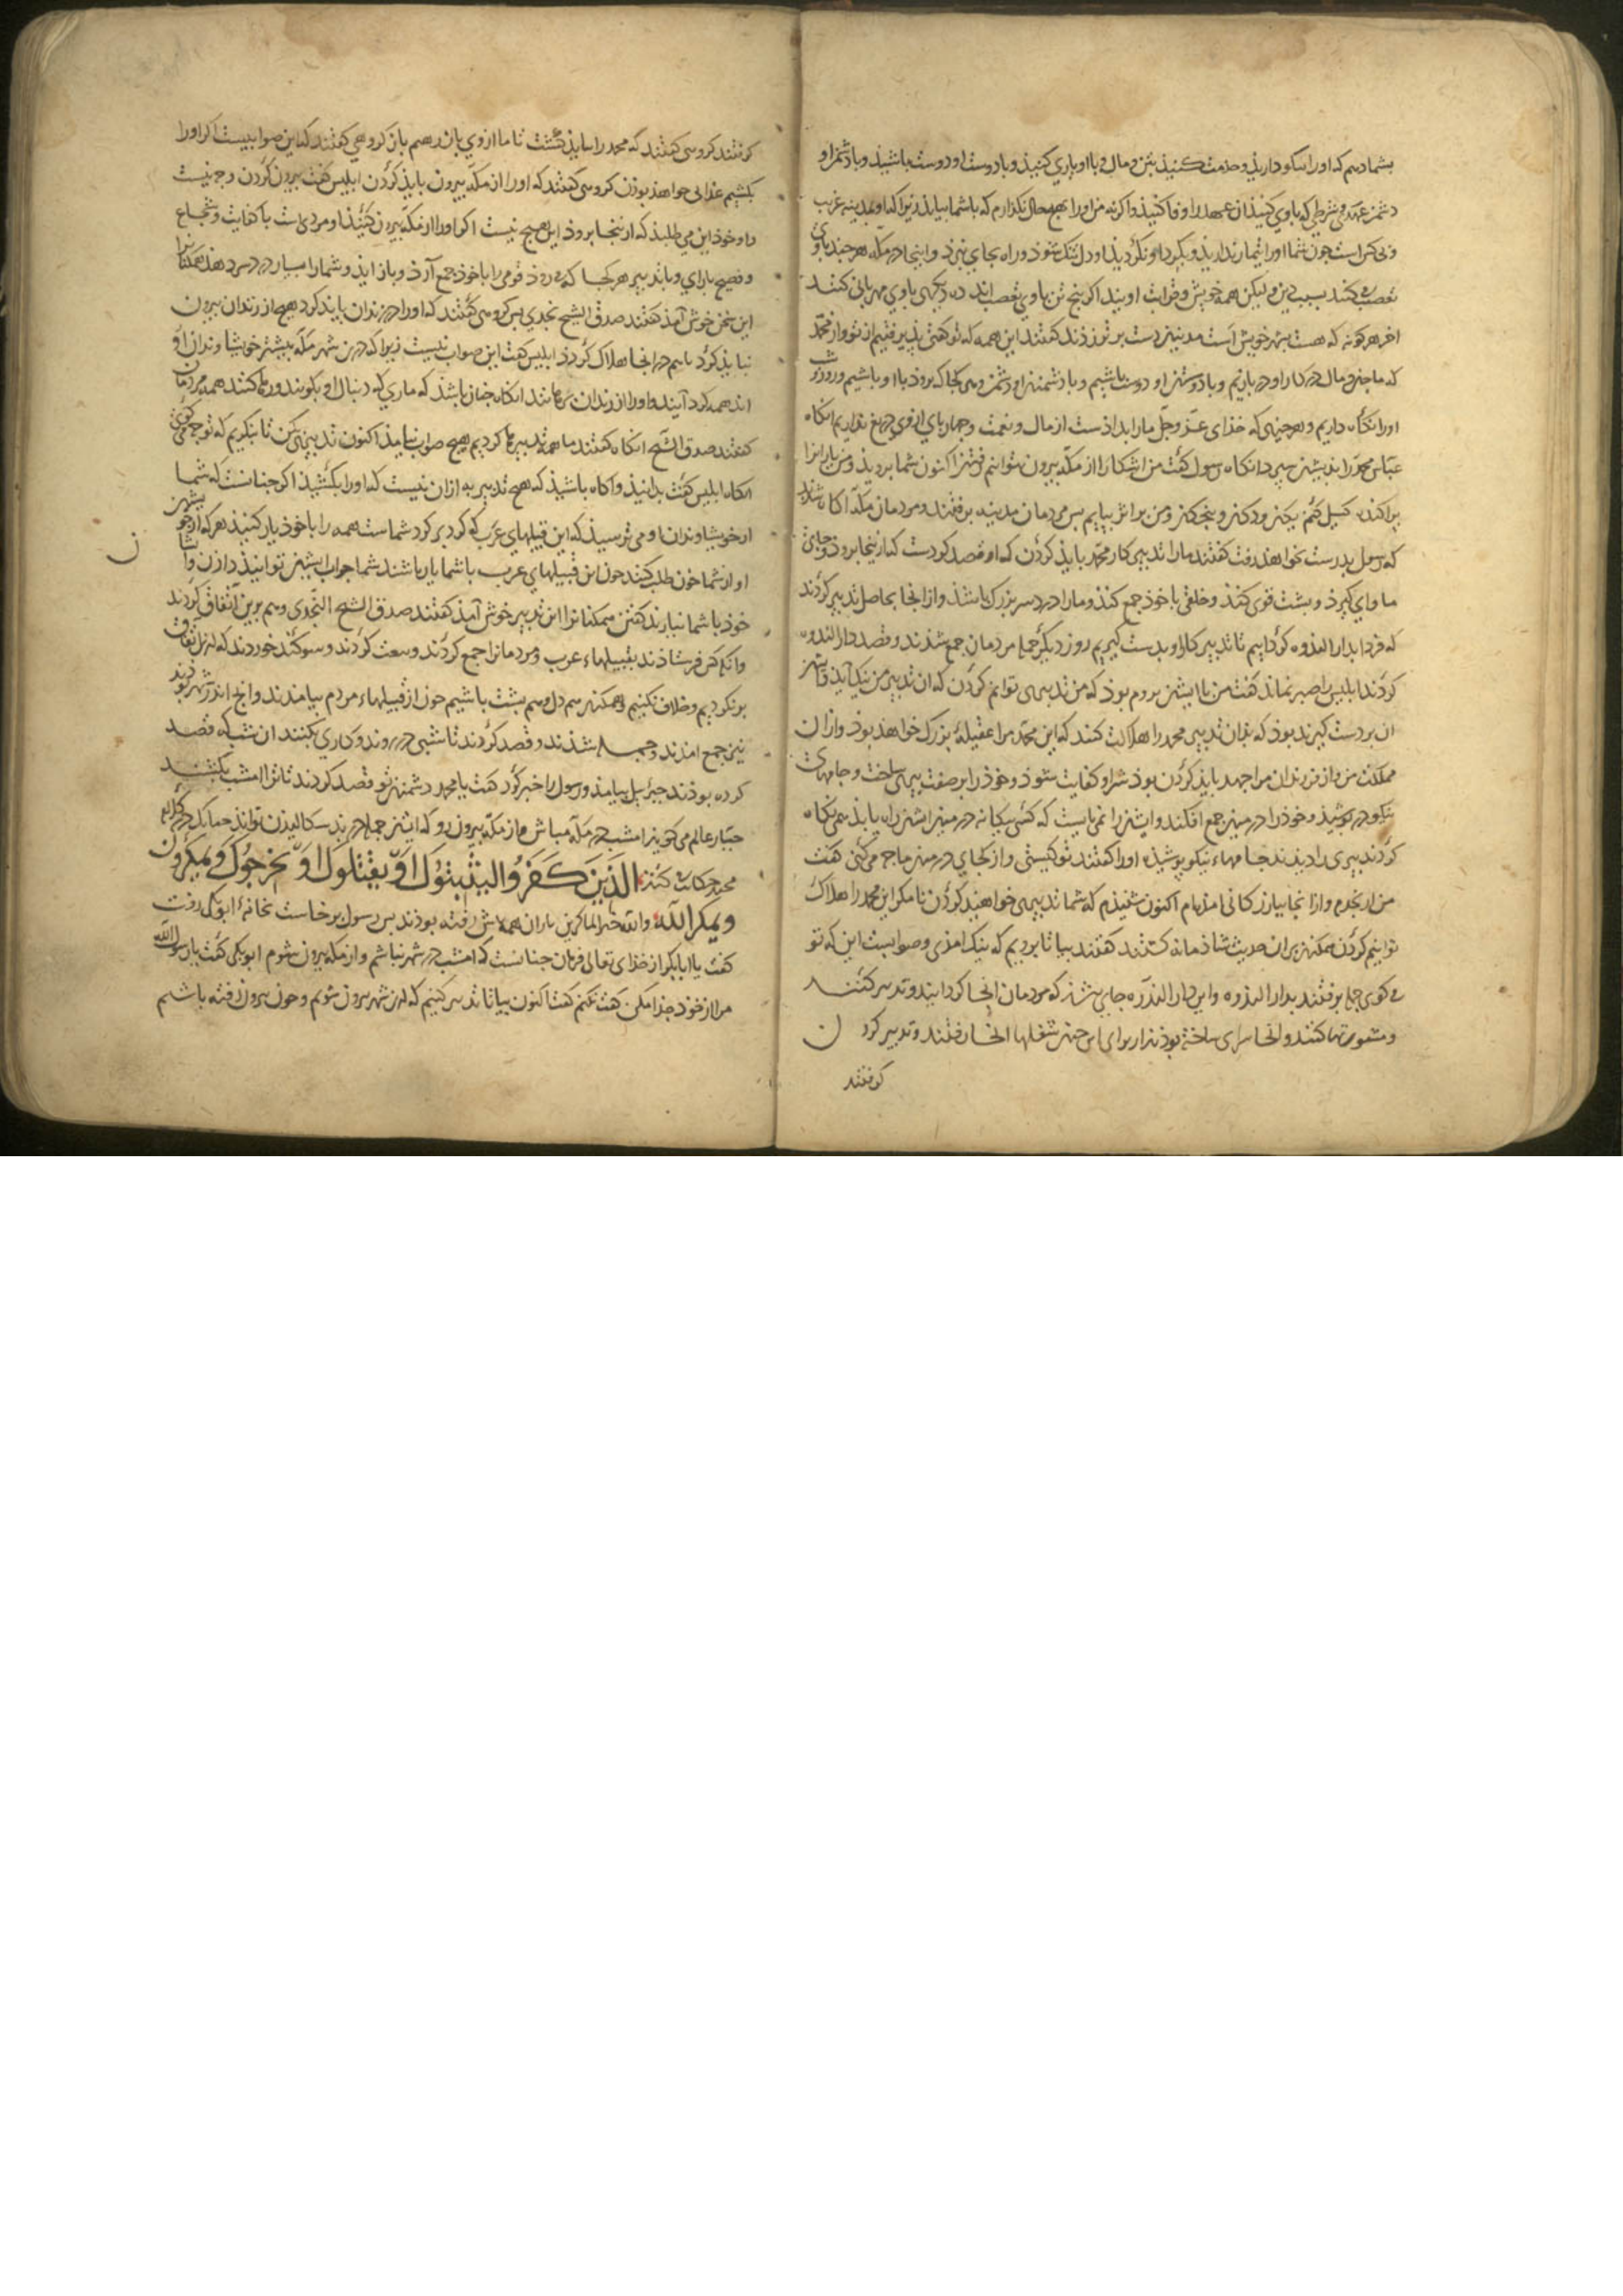 بشما دهم که اورا نیکو دارید و خدمت کنید بتن و مال و با او یاری کنید و با دوست او دوست باشید و با دشمن او
دشمن و هر شرطی که با وی کنید آن عهد را وفا کنید واکر نه من اورا بهیچ حال نکذارم که با شما بیاید زیرا که او بمدینه غریب
و بی کس است چون شما اورا تیمار ندارید و بکرد او نکردید او دل تنک شود و راه بجای نبرد و اینجا در مکه هر چند با وی
تعصب می کنند بسبب دین ولیکن همه خویش و قرابت اویند اکر پنج تن با وی تعصب اند ده دیکر با وی مهربانی کنند
اخر هر کونه که هست شهر خویش است مدینیان دست بر نو زدند کفتند این همه که تو کفتی پذیرفتیم از تو و از محمد
که ما جان و مال در کار او دربازیم و با دوستان او دوست باشیم و با دشمنان او دشمن و هر کجا که برود با او باشیم و روز و شب
اورا نکاه داریم و هر چیزی که خدای عز و جل مارا بداذست از مال و نعمت و چهارپای از وی دریغ نداریم انکاه
عباس محمد را بدیشان سپرد انکاه رسول کفت من اشکارا از مکه بیرون نتوانم رفتن اکنون شما بروید و من یارانرا
پراکنده کسیل کنم یکان و دوکان و پنج کان و من بر اثر بیایم پس مردمان مدینه برفتند و مردمان مکه آکاه شدند
که رسول بدرست بخواهد رفت کفتند مارا تدبیر کار محمد باید کردن که او قصد کردست که از اینجا برود و جایی
ماوای کیرد و پشت قوی کند و خلقی با خود جمع کند و مارا دردسر بزرک باشد و از انجا بحاصل تدبیر کردند
که فردا بدارالندوه کردآییم تا تدبیر کار او بدست کیریم روز دیکر جمله مردمان جمع شدند و قصد دارالندوه
کردند ابلیس را صبر نماند کفت من با ایشان بروم بود که من تدبیری توانم کردن که ان تدبیر من نیک آید و ایشان
ان بر دست کیرند بود که بدان تدبیر محمد را هلاک کنند که این محمد مرا عقیلهٔ بزرک خواهد بود و از ان
مملکت من و از فرزندان مرا جهد باید کردن بود شر او کفایت شود و خود را بر صفت پیری ساخت و جامهای
نیکو در پوشید و خود را در میان جمع افکند و ایشان را نمی بایست که کسی بیکانه در میان ایشان راه یابد همی نکاه
کردند پیری را دیدند جامهاء نیکو پوشیده اورا کفتند تو کیستی و از کجای در میان ما چه می کنی کفت
من از نجدم و از انجا بیازرکانی امده ام اکنون شنیدم که شما تدبیری خواهید کردن تا مکر این محمد را هلاک
توانیم کردن ممکنان بران حدیث شاذمانه کشتند کفتند بیا تا برویم که نیک امدی و صوابست این که تو
می کوی جمله برفتند بدارالندوه و این دارالندوه جایی بذ که مردمان انجا کردایند و تدبیر کنند
و مشورتها کنند و انجا سرای ساخته بودند از برای این چنین شغلها انجا رفتند و تدبیر کرد ن
کرفتند
کرفتند کروهی کفتند که محمد را بباید کشت تا ما از وی بازرهیم باز کروهی کفتند که این صواب نیست اکر اورا
بکشیم عذابی خواهد بودن کروهی کفتند که اورا از مکه بیرون باید کردن ابلیس کفت بیرون کردن وجه نیست
و او خود این می طلبد که از اینجا برود این هیچ نیست اکر اورا از مکه بیرون کنید او مردی است با کفایت و شجاع
و فصیح با رای و با تدبیر هر کجا که برود قومی را با خود جمع آرد و باز اید و شمارا بسیار دردسر دهد ممکنانرا
این سخن خوش آمد کفتند صدق الشیخ نجدی پس کروهی کفتند که اورا در زندان باید کرد و هیچ از زندان بیرون
نباید کرد تا هم در انجا هلاک کردد ابلیس کفت این صواب نیست زیرا که در ین شهر مکه بیشتر خویشاوندان او
اند همه کرد آیند و اورا از زندان برهانند انکاه چنان باشد که ماری که دنبال او بکوبند و رها کنند همه مردمان
کفتند صدق الشیخ انکاه کفتند ما همه تدبیرها کردیم هیچ صواب نیامد اکنون تدبیری کن تا بنکریم که تو چه می کوی
انکاه ابلیس کفت بدانید واکاه باشید که هیچ تدبیر به از ان نیست که اورا بکشید اکر چنانست که شما
از خویشاوندان او می ترسید که این قبیلهای عرب که کرد بر کرد شماست همه را با خود یار کنید هر که از خویشان
او از شما خون طلب کند چون این قبیلهای عرب با شما یار باشند شما جواب ایشان توانید دادن و ایشان
خود با شما نیارند کفتن ممکنانرا این تدبیر خوش آمد کفتند صدق الشیخ النجدی و هم برین اتفاق کردند
وانکه کس فرستادند بقبیلهاء عرب و مردمانرا جمع کردند و بیعت کردند و سوکند خوردند که ازین اتفاق
برنکردیم و خلاف نکنیم و ممکنان هم دل و هم پشت باشیم چون از قبیلهاء مردم بیامدند وانچ اندر شهر بودند
نیز جمع امدند و جمله شدند و قصد کردند تا شبی درروند و کاری بکنند ان شب که قصد
کرده بودند جبرئیل بیامد و رسول را خبر کرد کفت یا محمد دشمنان تو قصد کردند تا ترا امشب بکشند
جبار عالم می کوید امشب در مکه مباش و از مکه بیرون رو که ایشان جمله در بند سکالیدن تواند چنانک در کلام
مجید حکایت کند الذین کفروا لیثبتوک او یقتلوک او یخرجوک ویمکرون
ویمکر الله والله خیر الماکرین یاران همه پیش رفته بودند پس رسول برخاست بخانهٔ ابوبکر رفت
کفت یا ابابکر از خدای تعالی فرمان چنانست که امشب در شهر نباشم و از مکه بیرون شوم ابوبکر کفت یا رسول الله
مرا از خود جدا مکن کفت نکنم کفت اکنون بیا تا تدبیر کنیم که از ین شهر بیرون شویم و چون بیرون رفته باشیم